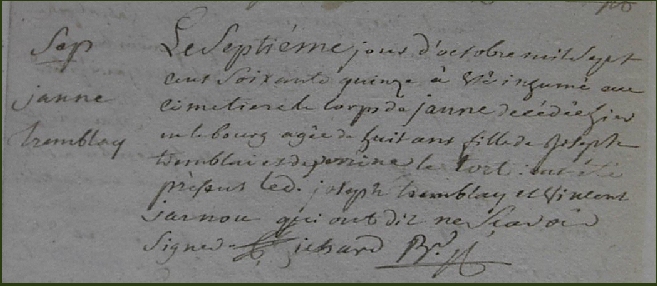 Sep
janne
tremblay
Le Septiéme jour d'octobre mil Sept
cent Soixante quinze à été inhumé au
cimetiere le corps de janne decédée hier
en le bourg agée de huit ans fille de Joseph
tremblai et de perrine le tort : ont été
présent led. joseph tremblay et Vincent
jarnou qui ont dit ne Scavoir
Signer